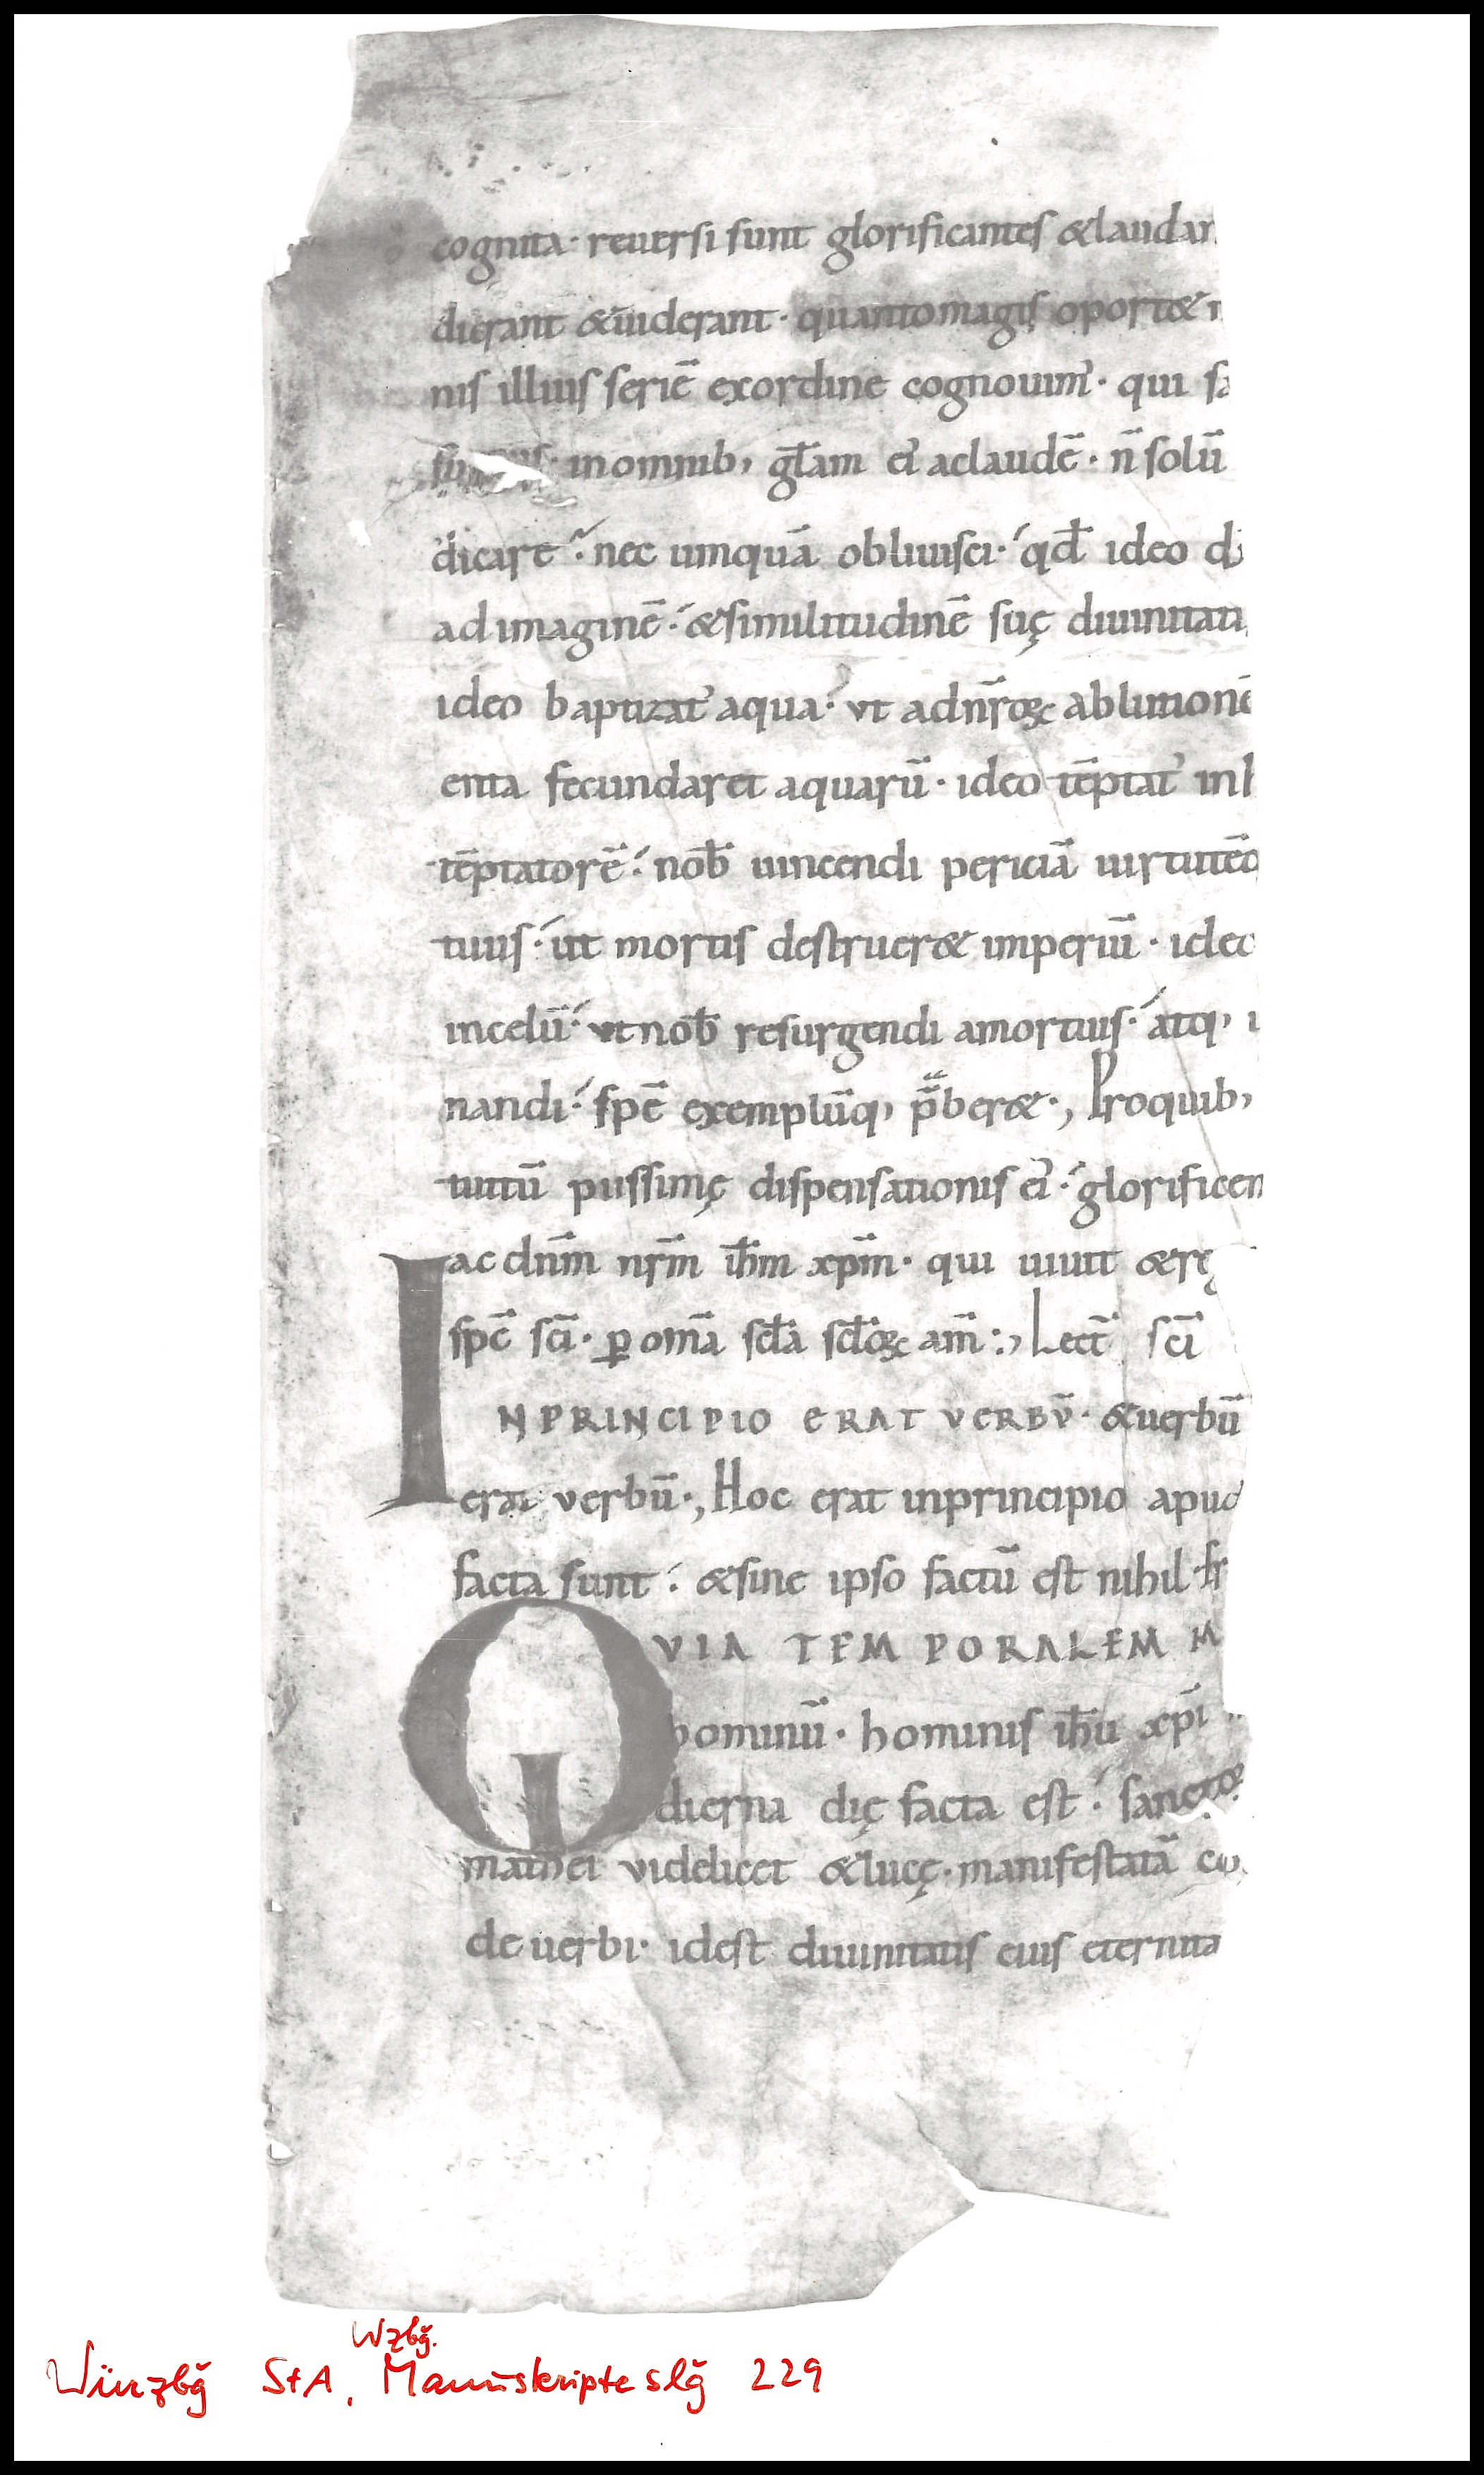 cognita · reuersi sunt glorificantes &laudan
dierant &uiderant · quanto magis oport&
nis illius seriē exordine cognouim᾽ · qui sa
inomnib; gl̄am ei᾽ aclaudē · n̄ solū
dicare · nec umquā obliuisci · qd̄ ideo
adimaginē · &similitudinē suę diuinitati
ideo baptizat᾽ aqua · vt adnr̄oꝝ ablutionē
enta fecundaret aquarū · ideo tēptat᾽ in
tēptatorē · nob̄ uincendi periciā uirtutēq
tuus · ut mortis destruer& imperiū · ideo
incelū · vt nob̄ resurgendi amortuis · atq;
nandi · spē exemplūq; p̄ber& ·, Proquib;
tutū piissimę dispensationis ei᾽ · glorificen
ac dn̄m nr̄m ih̄m xp̄m · qui uiuit &re
sp̄c sc̄i · ꝑ om̄a sc̄la sc̄loꝝ am̄ :, Lect̄ sc̄i
INPRINCIPIO ERAT VERBV̄ · &uerbū
erat verbū ·, Hoc erat inprincipio apud
facta sunt · &sine ipso factū est nihil ·
QVIA TEMPORALEM M
hominū · hominis ih̄u xp̄i
dierna dię facta est ·
mathei videlicet &lucę · manifestatā
de uerbi · idest diuinitatis eius eternita
Wzbg̃.
Würzbg̃ StA, Manuskripteslg̃ 229